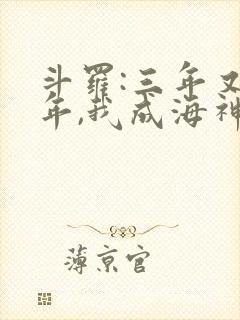 斗罗:三年又
年,我成海神
薄京官